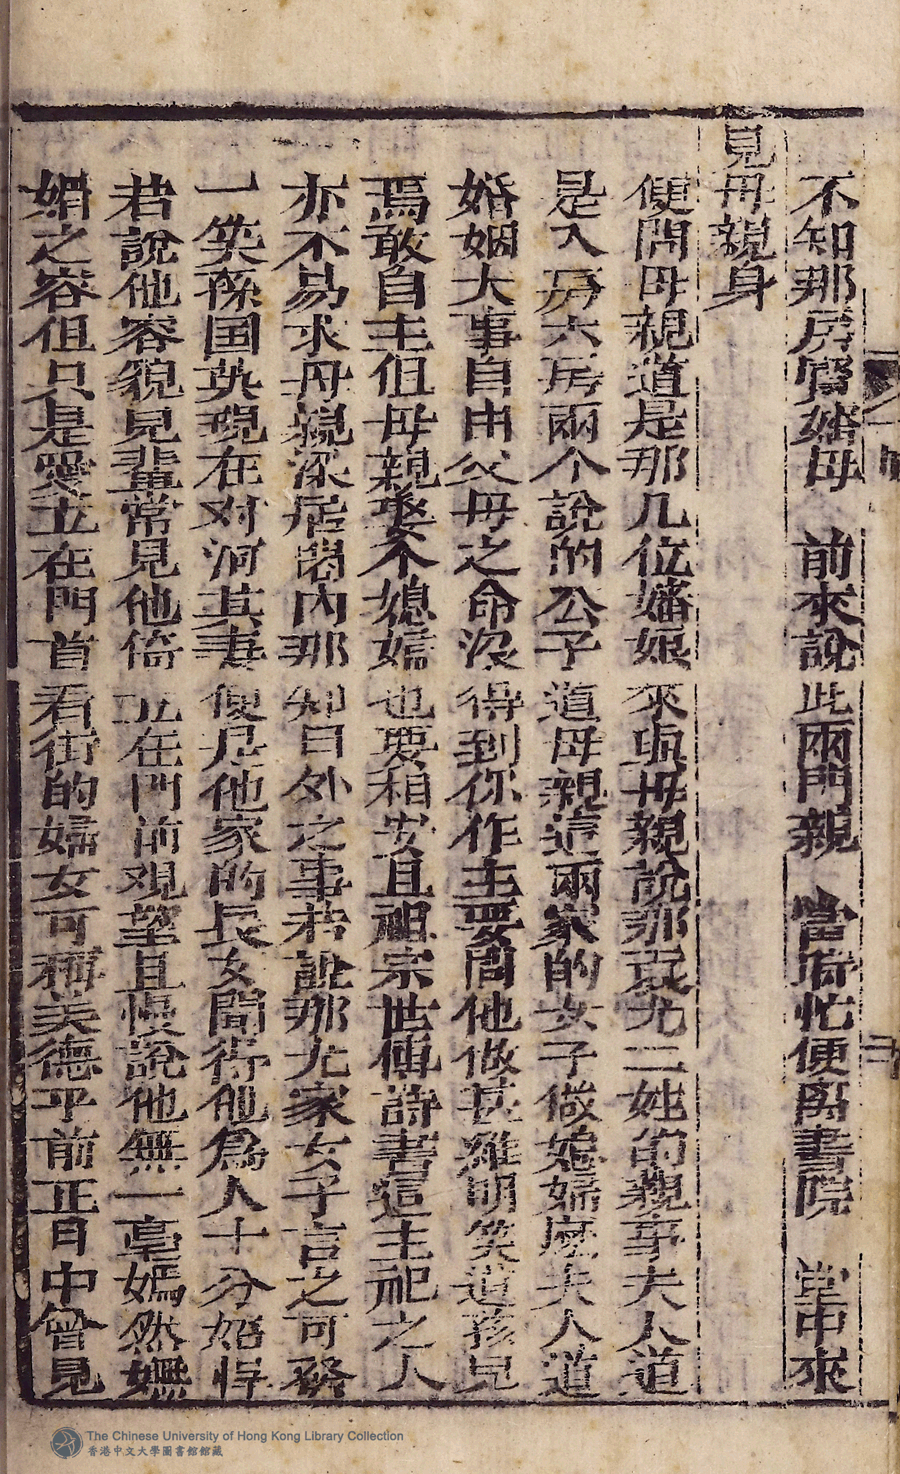 不知那房賢嬸母　前來說此兩門親　當時忙便离書院　堂中來
見母親身
便問母親道是那几位嬸娘來與母親說那袁尤二姓的親事夫人道
是入房六房兩个說的公子道母親這兩家的女子做媳婦庅夫人道
婚姻大事自由父母之命没得到你作主要問他做甚维明笑道孩兒
焉敢自主但母親娶个媳婦也要相安且祖宗世傳詩書這主祀之人
亦不易求母親深居閨內那知日外之事若說那尤家女子言之可發
一笑孫国英現在对河其妻便是他家的長女聞得他爲人十分妬悍
若說他容貌見輩常見他倚立在門前观望且慢說他無一毫嫣然嫵
媚之容但只是愛立在門首看街的婦女可稱美德乎前正日中曾見
The Chinese University of Hong Kong Library Collection
香港中文大學圖書館館藏